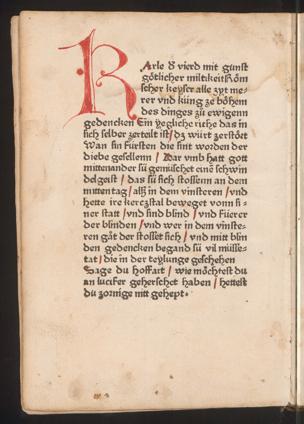 KArle d̕ vierd mit gunst
götlicher miltikeit Röm
scher keyser alle zyt me-
rer vnd küng ze böhem
des dinges zů ewigenn
gedencken Ein yegliche riche das in
sich selber zerteilt ist / dz würt zerstöet
Wan sin fürsten die sint worden der
diebe gesellenn / Dar vmb hatt gott
mittenander sü gemischet eine schwin
delgeist / das sü sich stossenn an dem
mittentag / alß in dem vinsteren / vnd
hette ire kerczstal beweget vonn si-
ner statt / vnd sind blind / vnd füerer
der blinden / vnd wer in dem vinste-
ren gät der stosset sich / vnd mitt blin
den gedencken begand sü vil müsse-
tat / die in der teylunge geschehen
Sage du hoffart / wie möchtest du
an lucifer gehersehet haben / hettest
du zornige nitt gehept.